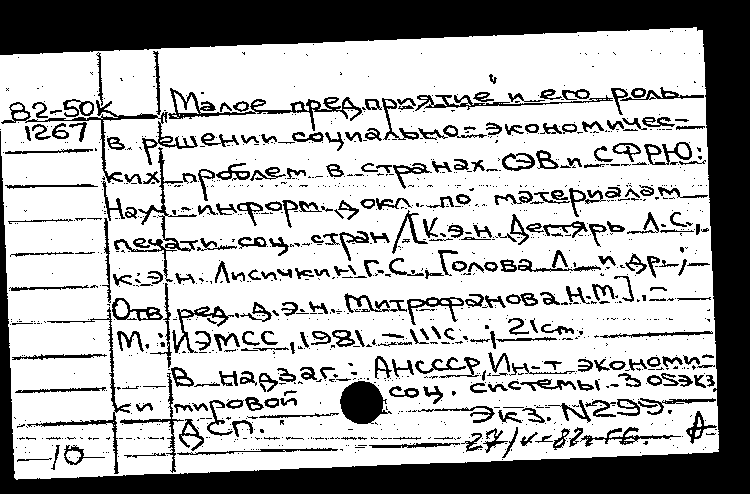 82-50К
1267
„Малое предприятие" и его роль
в решении социально-экономичес-
ких проблем в странах СЭВ и СФРЮ:
Науч.-информ. докл. по материалам
печати соц. стран/[К.э.н. Дегтярь Л.С.,
к.э.н. Лисичкин Г.С., Голова Л. и др.;
Отв. ред. д.э.н. Митрофанова Н.М].-
М.: ИЭМСС, 1981. - 111с.; 21см.
В надзаг.: АНСССР, Ин-т экономи-
ки мировой соц. системы. 305экз
Экз. N299.
ДСП.
10